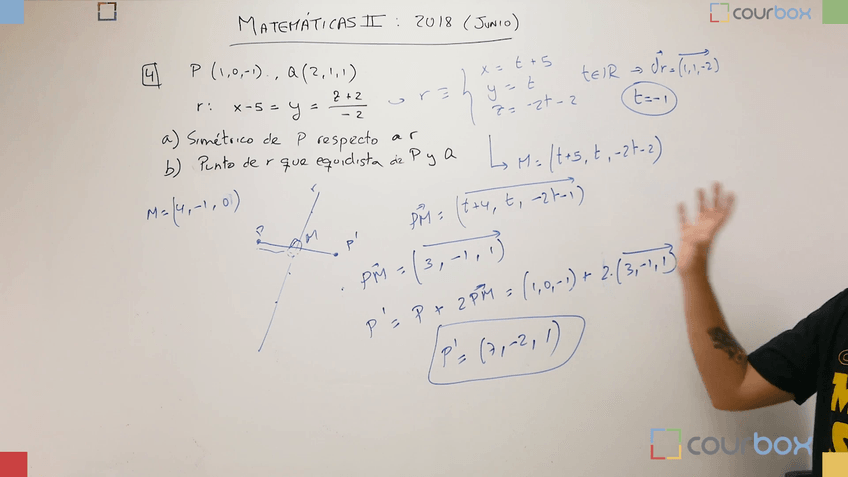 MATEMÁTICAS II : 2018 (JUNIO)
4 P(1,0,-1)., Q(2,1,1)
r: x-5 = y = z+2/-2 → r ≡ { x = t+5
y = t
z = -2t-2
t∈ℝ → dr = (1,1,-2)
t=-1
a) Simétrico de P respecto a r
b) Punto de r que equidista de P y Q
M = (t+5, t, -2t-2)
M = (4, -1, 0)
r
P
M
P'
PM = (t+4, t, -2t-1)
PM = (3, -1, 1)
P' = P + 2PM = (1,0,-1) + 2·(3,-1,1)
P' = (7, -2, 1)
courbox
courbox